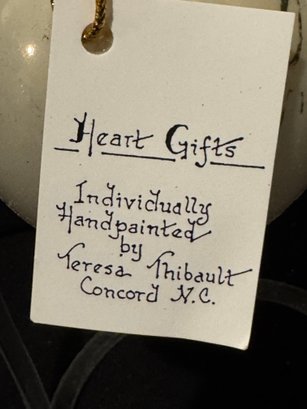 Heart Gifts
Individually
Handpainted
by
Teresa Thibault
Concord N.C.